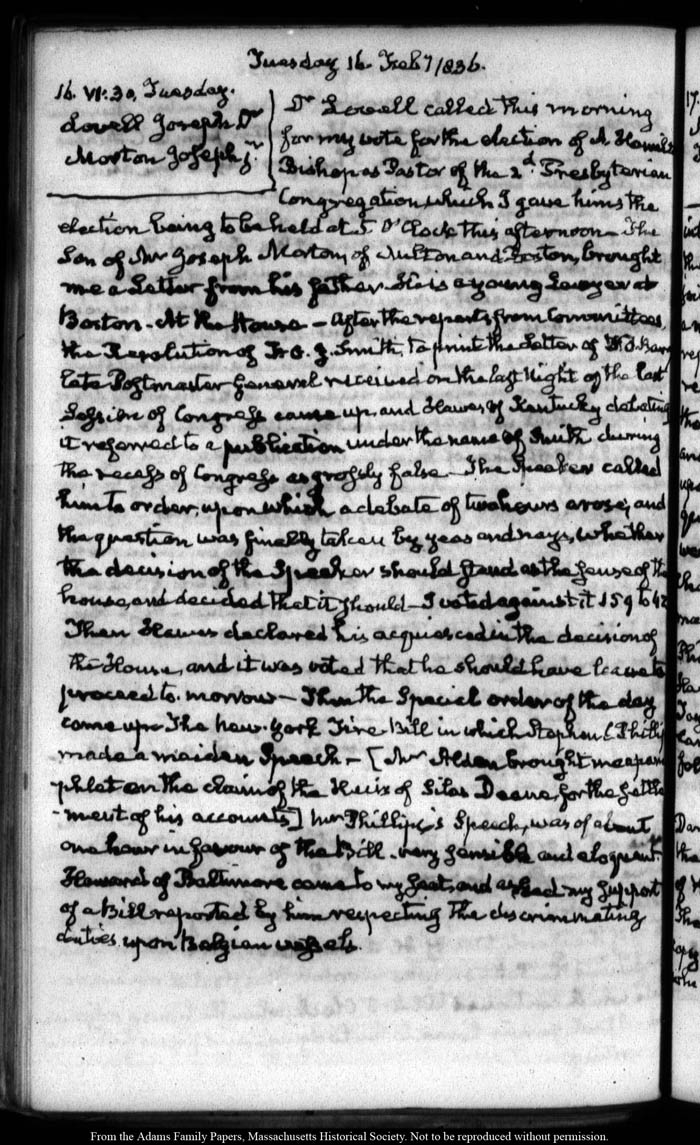 Tuesday 16. Feb.y 1836.
16. VI:30. Tuesday.
Lovell Joseph Dr
Morton Joseph jr.
Dr. Lovell called this morning
for my vote for the election of A Hamilt
Bishop as Pastor of the 2d. Presbyterian
Congregation which I gave him, the
election being to be held at 5. O'Clock this afternoon. The
Son of Mr Joseph Morton, of Milton and Boston, brought
me a Letter from his father. He is a young Lawyer at
Boston. At the House — after the reports from Committees,
the Resolution of F. O. J. Smith, to print the Letter of W. T. Barry
late Postmaster General received on the last Night of the last
Session of Congress came up, and Hawes of Kentucky debating
it referred to a publication under the name of Smith during
the recess of Congress as grossly false. The Speaker called
him to order; upon which a debate of two hours arose; and
the question was finally taken by yeas and nays, whether
the decision of the Speaker should stand as the sense of the
house, and decided that it should — I voted against it 159 to 42
Then Hawes declared his acquiescence in the decision of
the House, and it was voted that he should have leave to
proceed to-morrow — Then the Special order of the day
came up. The New-York Fire Bill in which Stephen C Phillip
made a maiden Speech — [Mr Alden brought me a pam
phlet on the claim of the Heirs of Silas Deane, for the settle
-ment of his accounts] Mr Phillips's Speech, was of about
one hour in favour of the Bill. very sensible and eloquent.
Howard of Baltimore came to my seat, and asked my support
of a Bill reported by him respecting the discriminating
duties upon Belgian vessels.
From the Adams Family Papers, Massachusetts Historical Society. Not to be reproduced without permission.